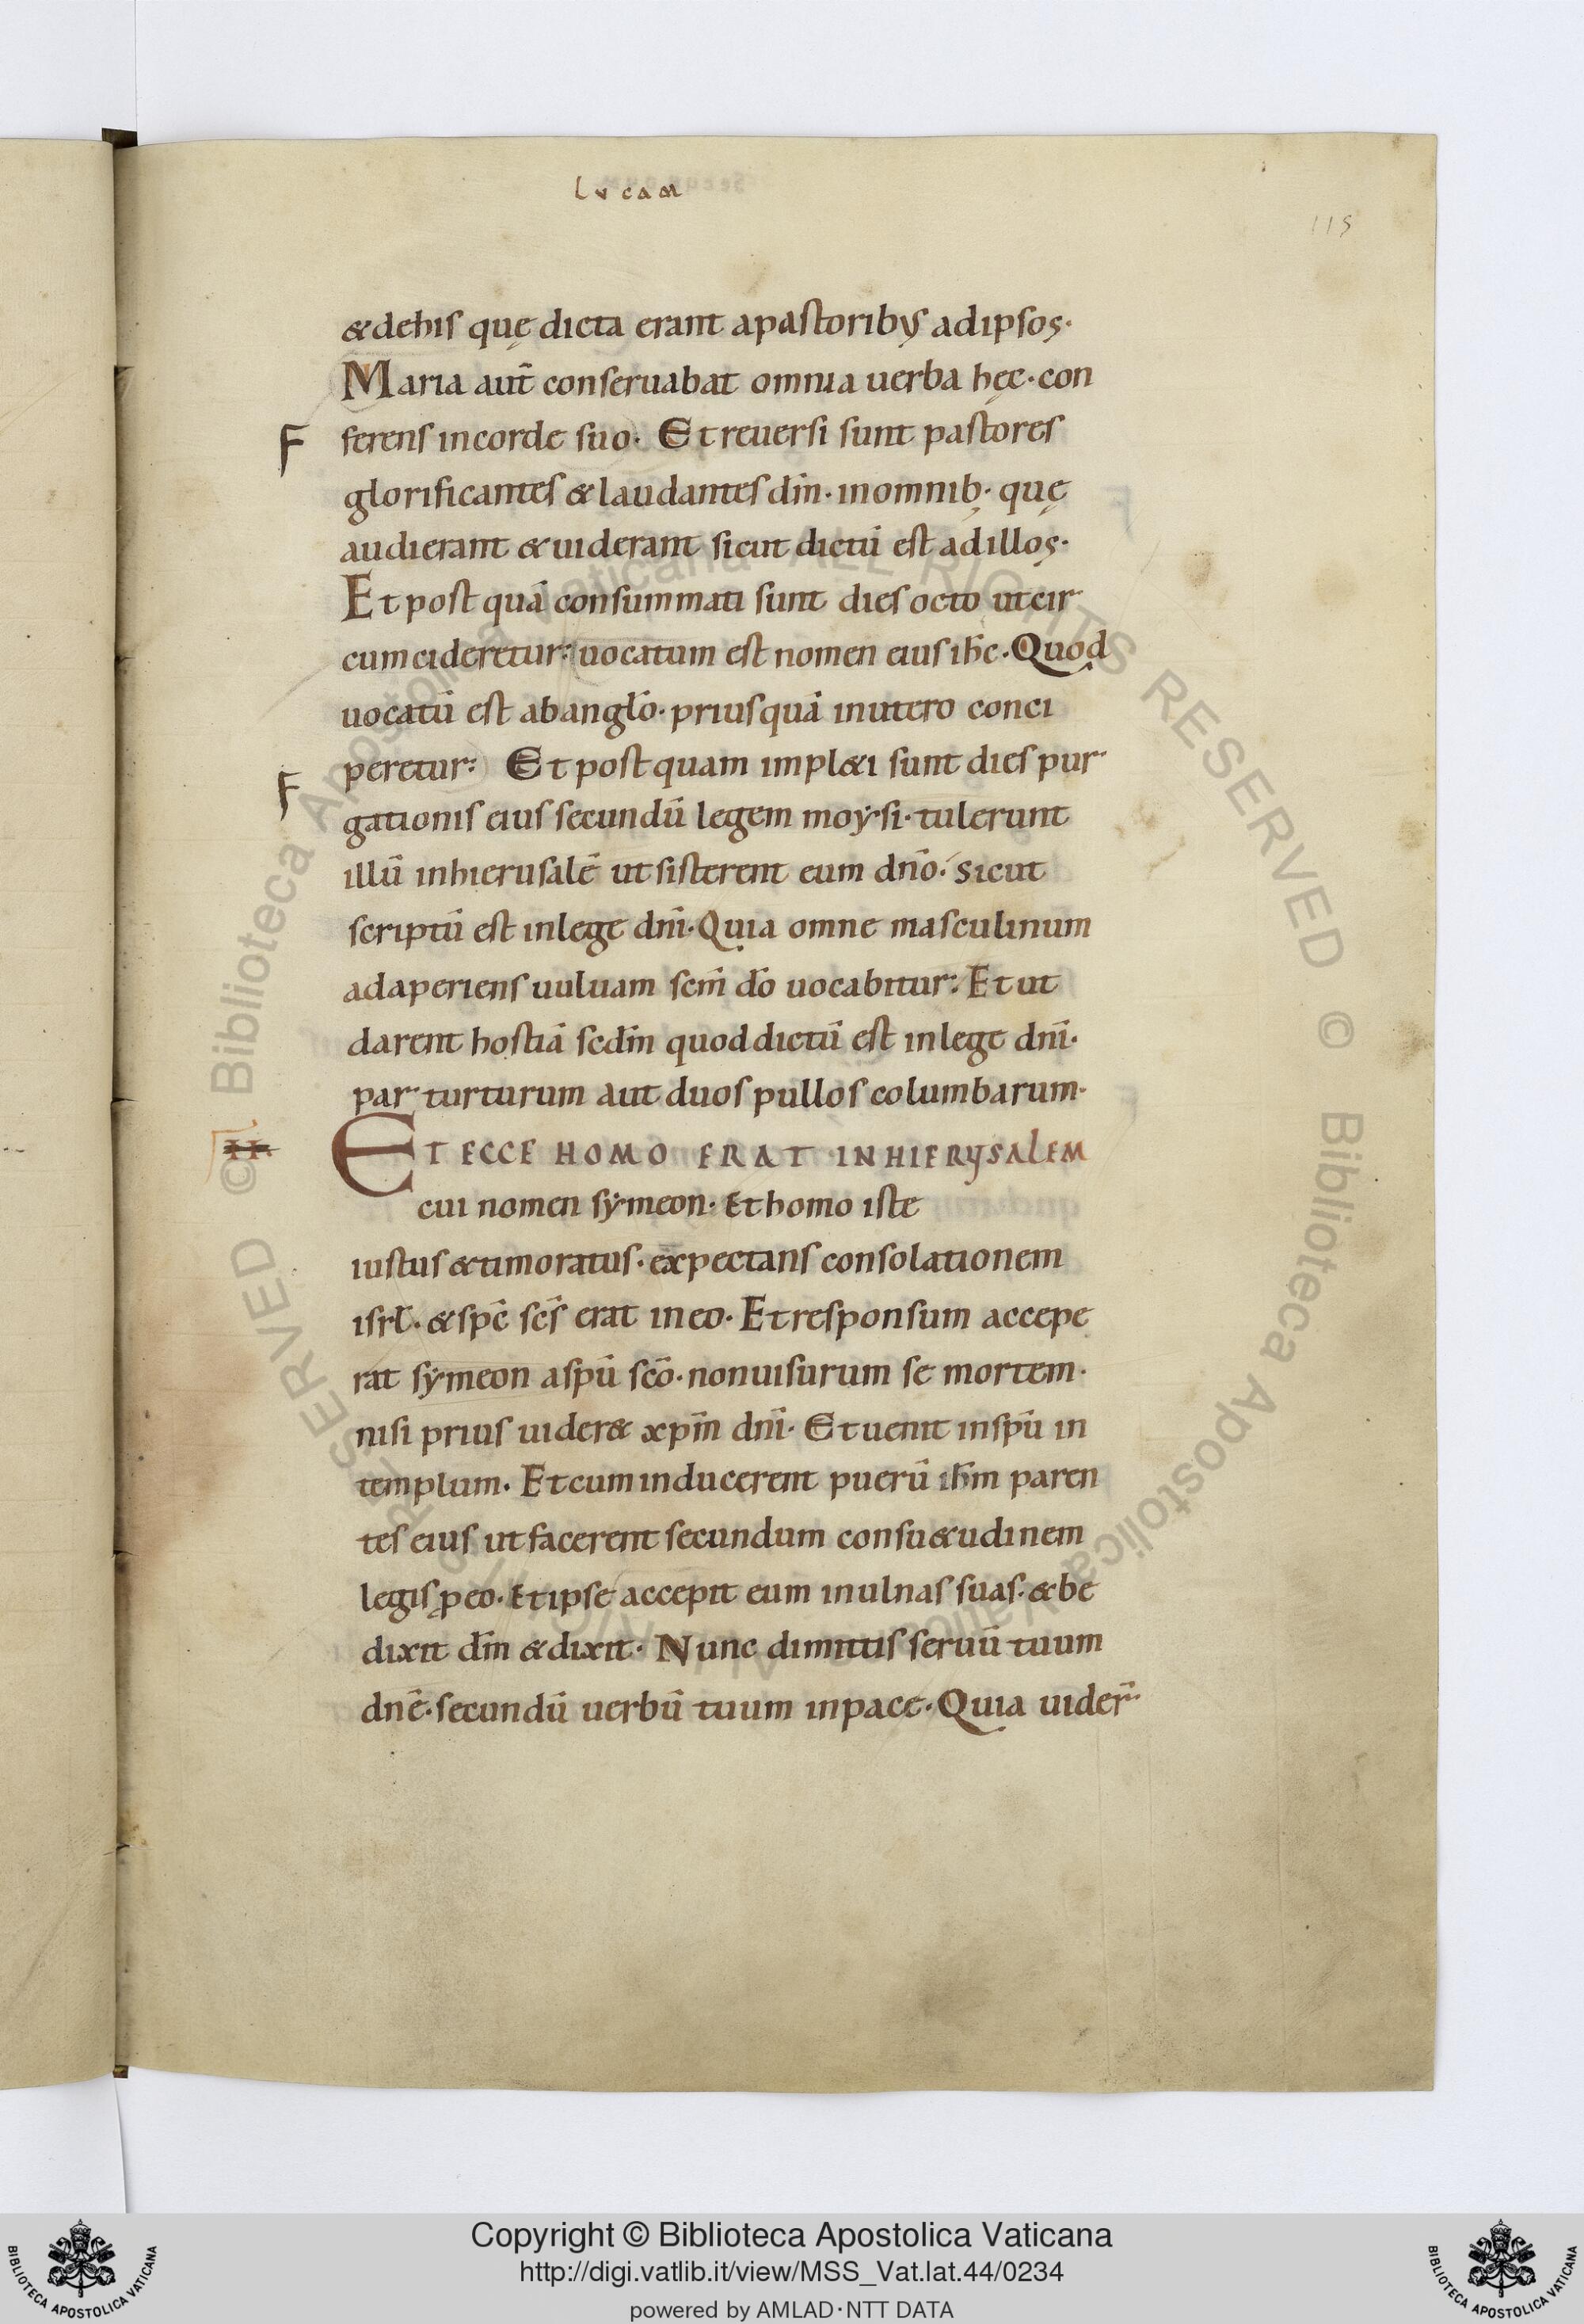 lucam
115
& de his quę dicta erant a pastoribus ad ipsos·
Maria aut̄ conseruabat omnia uerba hęc· con
F ferens in corde suo· Et reuersi sunt pastores
glorificantes & laudantes dm̄· in omnib; quę
audierant & uiderant sicut dictū est ad illos·
Et post quā consummati sunt dies octo ut cir
cumcideretur: uocatum est nomen eius ihc̄· Quod
uocatū est ab anglo̅· prius quā in utero conci
F peretur: Et post quam impl&i sunt dies pur
gationis eius secundū legem moysi· tulerunt
illū in hierusalē ut sisterent eum dn̄o· sicut
scriptū est in lege dn̄i· Quia omne masculinum
adaperiens uuluam scm̄ dō uocabitur: Et ut
darent hostiā scdm̄ quod dictū est in lege dn̄i·
par turturum aut duos pullos columbarum·
II ET ECCE HOMO ERAT IN HIERUSALEM
cui nomen symeon· Et homo iste
iustus & timoratus· expectans consolationem
isrl̄· & spc̄ scs̄ erat in eo· Et responsum accepe
rat symeon a spū scō· non uisurum se mortem·
nisi prius uider& xpm̄ dn̄i· Et uenit in spū in
templum· Et cum inducerent puerū ihm̄ paren
tes eius ut facerent secundum consu&udinem
legis ꝓ eo· Et ipse accepit eum in ulnas suas· & be
dixit dm̄ & dixit· Nunc dimittis seruū tuum
dn̄e· secundū uerbū tuum in pace· Quia uider̄
© Biblioteca Apostolica Vaticana ALL RIGHTS RESERVED © Biblioteca Apostolica Vaticana
Copyright © Biblioteca Apostolica Vaticana
http://digi.vatlib.it/view/MSS_Vat.lat.44/0234
powered by AMLAD·NTT DATA
BIBLIOTECA APOSTOLICA VATICANA
BIBLIOTECA APOSTOLICA VATICANA